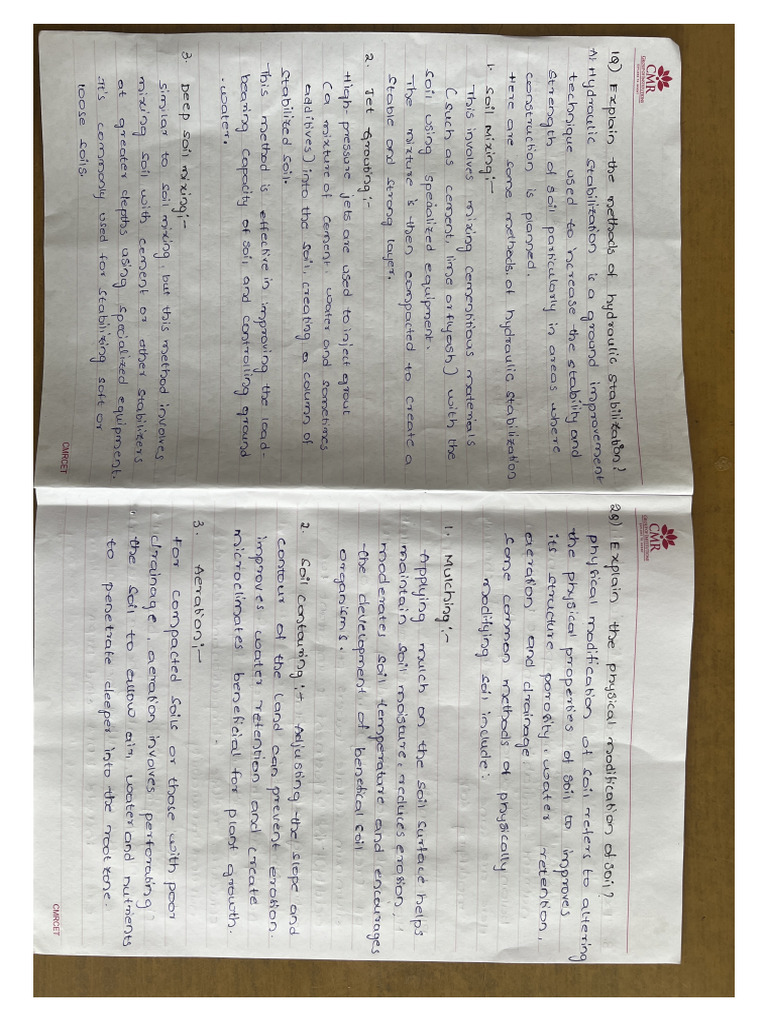 CMR
1Q) Explain the methods of hydraulic stabilization?
A) Hydraulic stabilization is a ground improvement
technique used to increase the stability and
strength of soil particularly in areas where
construction is planned.
Here are some methods of hydraulic stabilization
1. Soil Mixing:-
This involves mixing cementitious materials
(such as cement, lime or flyash) with the
soil using specialized equipment.
The mixture is then compacted to create a
stable and strong layer.
2. Jet Grouting:-
High-pressure jets are used to inject grout
(a mixture of cement, water and sometimes
additives) into the soil, creating a column of
stabilized soil.
This method is effective in improving the load-
bearing capacity of soil and controlling ground
water.
3. Deep soil mixing:-
similar to soil mixing, but this method involves
mixing soil with cement or other stabilizers
at greater depths using specialized equipment.
It's commonly used for stabilizing soft or
loose soils.
CMRCET
CMR
2Q) Explain the physical modification of soil?
physical modification of soil refers to altering
the physical properties of soil to improves
its structure porosity, water retention,
aeration and drainage
some common methods of physically
modifying soil include:
1. Mulching:-
Applying mulch on the soil surface helps
maintain soil moisture, reduces erosion,
moderates soil temperature and encourages
the development of benefical soil
organisms.
2. Soil contouring:- Adjusting the slope and
contour of the land can prevent erosion.
improves water retention and create
microclimates beneficial for plant growth.
3. Aeration:-
For compacted soils or those with poor
drainage, aeration involves perforating
the soil to allow air, water and nutrients
to penetrate deeper into the root zone.
CMRCET